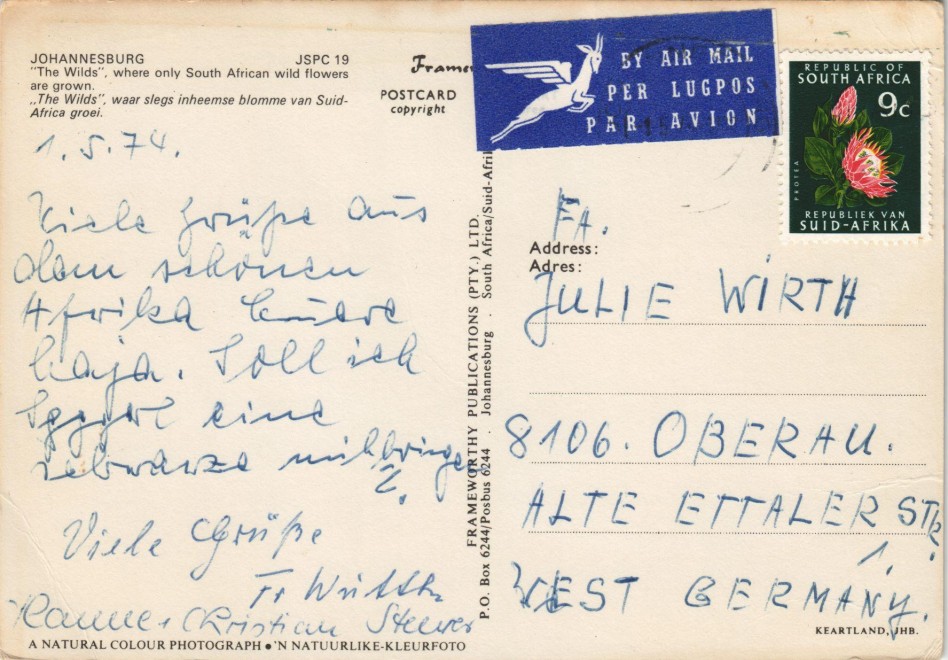 JOHANNESBURG JSPC 19
"The Wilds", where only South African wild flowers
are grown.
„The Wilds", waar slegs inheemse blomme van Suid-
Afrika groei.
Framew
POSTCARD
copyright
BY AIR MAIL
PER LUGPOS
PAR AVION
REPUBLIC OF
SOUTH AFRICA
9c
PROTEA
REPUBLIEK VAN
SUID-AFRIKA
1.5.74.
Viele Grüße aus
dem schönen
Afrika
Kaja. Soll ich
eine
schwarze mitbringen
?.
Viele Grüße
Fr
Hanne + Christian
FRAMEWORTHY PUBLICATIONS (PTY.) LTD.
P.O. Box 6244/Posbus 6244 . Johannesburg . South Africa/Suid-Afrik
FA.
Address:
Adres:
JULIE WIRTH
8106. OBERAU.
ALTE ETTALER STR.
1.
WEST GERMANY.
KEARTLAND, JHB.
A NATURAL COLOUR PHOTOGRAPH ● 'N NATUURLIKE-KLEURFOTO